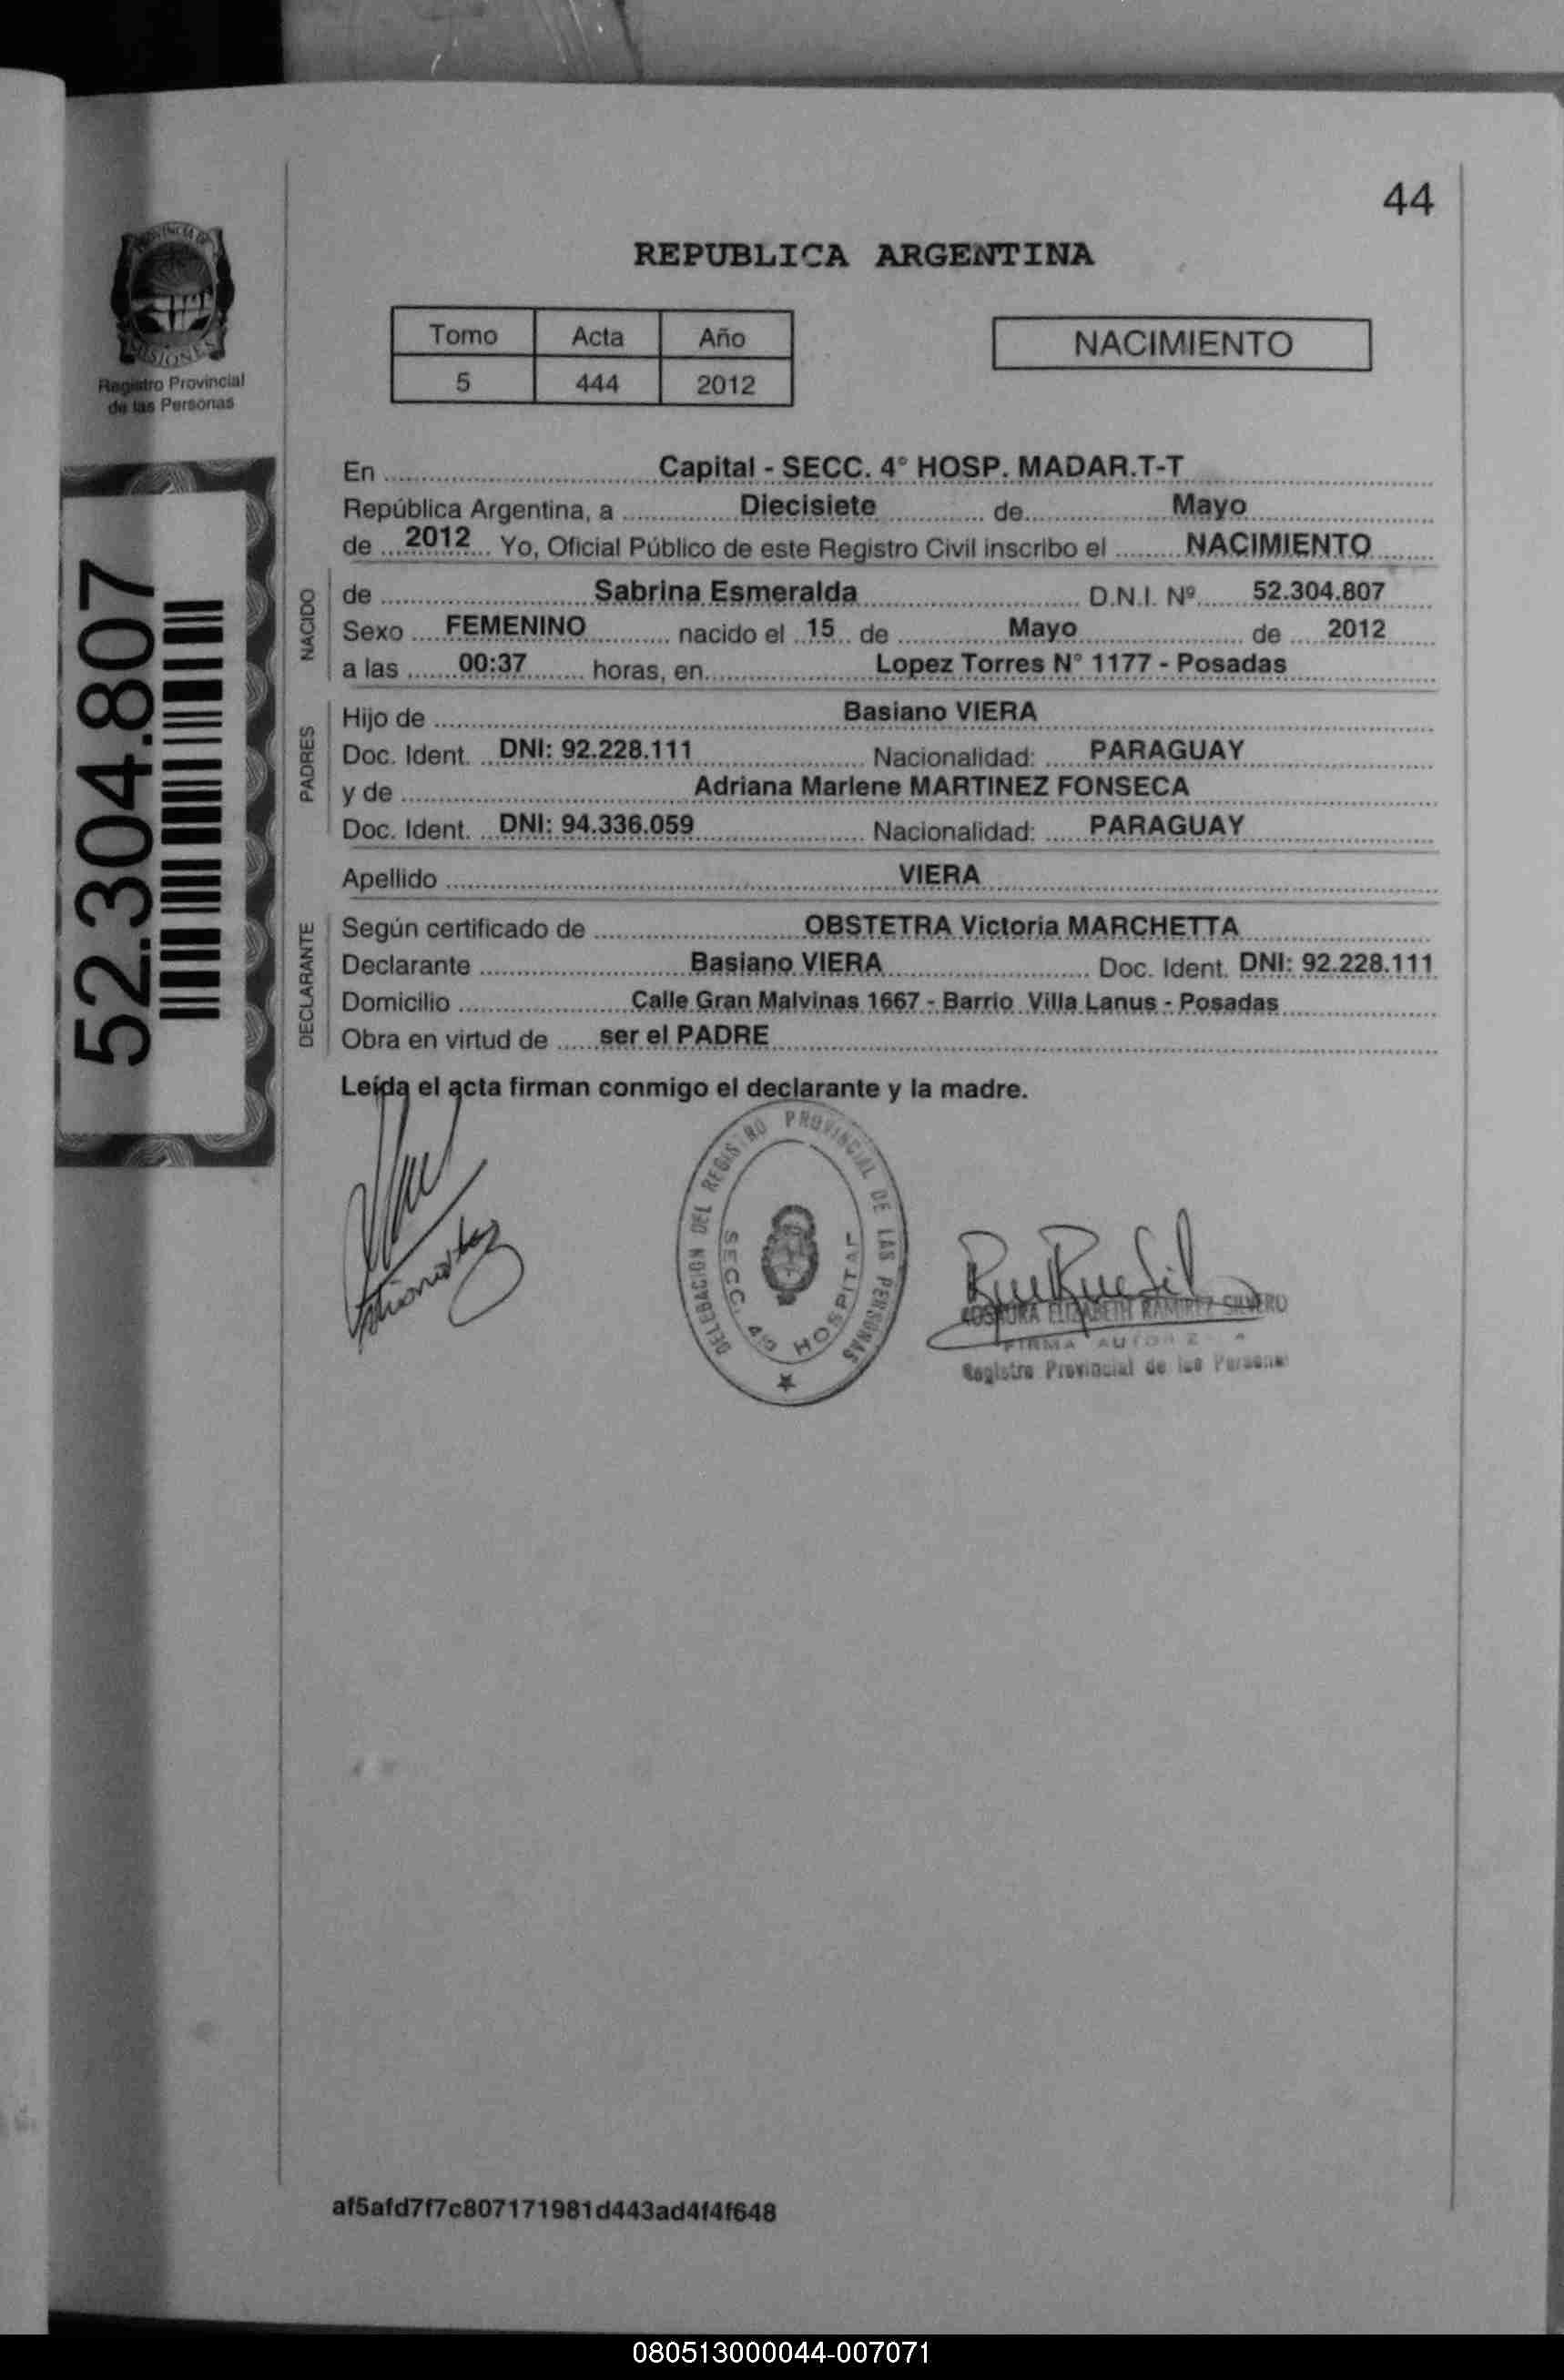 44
PROVINCIA DE
MISIONES
Registro Provincial
de las Personas
REPUBLICA ARGENTINA
Tomo Acta Año
5 444 2012
NACIMIENTO
52.304.807
En Capital - SECC. 4° HOSP. MADAR.T-T
República Argentina, a Diecisiete de Mayo
de 2012 Yo, Oficial Público de este Registro Civil inscribo el NACIMIENTO
NACIDO
de Sabrina Esmeralda D.N.I. Nº 52.304.807
Sexo FEMENINO nacido el 15 de Mayo de 2012
a las 00:37 horas, en Lopez Torres N° 1177 - Posadas
PADRES
Hijo de Basiano VIERA
Doc. Ident. DNI: 92.228.111 Nacionalidad: PARAGUAY
y de Adriana Marlene MARTINEZ FONSECA
Doc. Ident. DNI: 94.336.059 Nacionalidad: PARAGUAY
Apellido VIERA
DECLARANTE
Según certificado de OBSTETRA Victoria MARCHETTA
Declarante Basiano VIERA Doc. Ident. DNI: 92.228.111
Domicilio Calle Gran Malvinas 1667 - Barrio Villa Lanus - Posadas
Obra en virtud de ser el PADRE
Leída el acta firman conmigo el declarante y la madre.
DELEGACION DEL REGISTRO PROVINCIAL DE LAS PERSONAS
SECC. 4º HOSPITAL
ELIZABETH RAMIREZ SILVERO
FIRMA
Registro Provincial de las Personas
af5afd7f7c807171981d443ad4f4f648
080513000044-007071